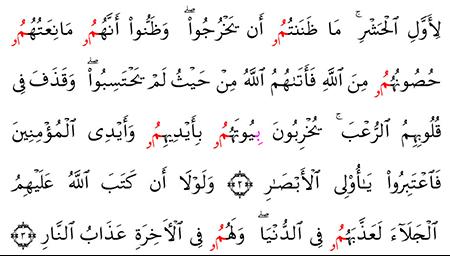 لِأَوَّلِ اَ۬لْحَشْرِۚ مَا ظَنَنتُمُۥٓ أَن يَّخْرُجُواْۖ وَظَنُّوٓاْ أَنَّهُمُۥ مَانِعَتُهُمُۥ
حُصُونُهُمُۥ مِنَ اَ۬للَّهِ فَأَتَىٰهُمُ اُ۬للَّهُ مِنْ حَيْثُ لَمْ يَحْتَسِبُواْۖ وَقَذَفَ فِي
قُلُوبِهِمُ اُ۬لرُّعْبَۚ يُخْرِبُونَ بِيُوتَهُمُۥ بِأَيْدِيهِمُۥ وَأَيْدِي اِ۬لْمُؤْمِنِينَ
فَاعْتَبِرُواْ يَٰٓأُوْلِي اِ۬لْأَبْصَٰرِ ٢ وَلَوْلَآ أَن كَتَبَ اَ۬للَّهُ عَلَيْهِمُ
اُ۬لْجَلَآءَ لَعَذَّبَهُمُۥ فِي اِ۬لدُّنْيَاۖ وَلَهُمُۥ فِي اِ۬لْأٓخِرَةِ عَذَابُ اُ۬لنَّارِ ٣